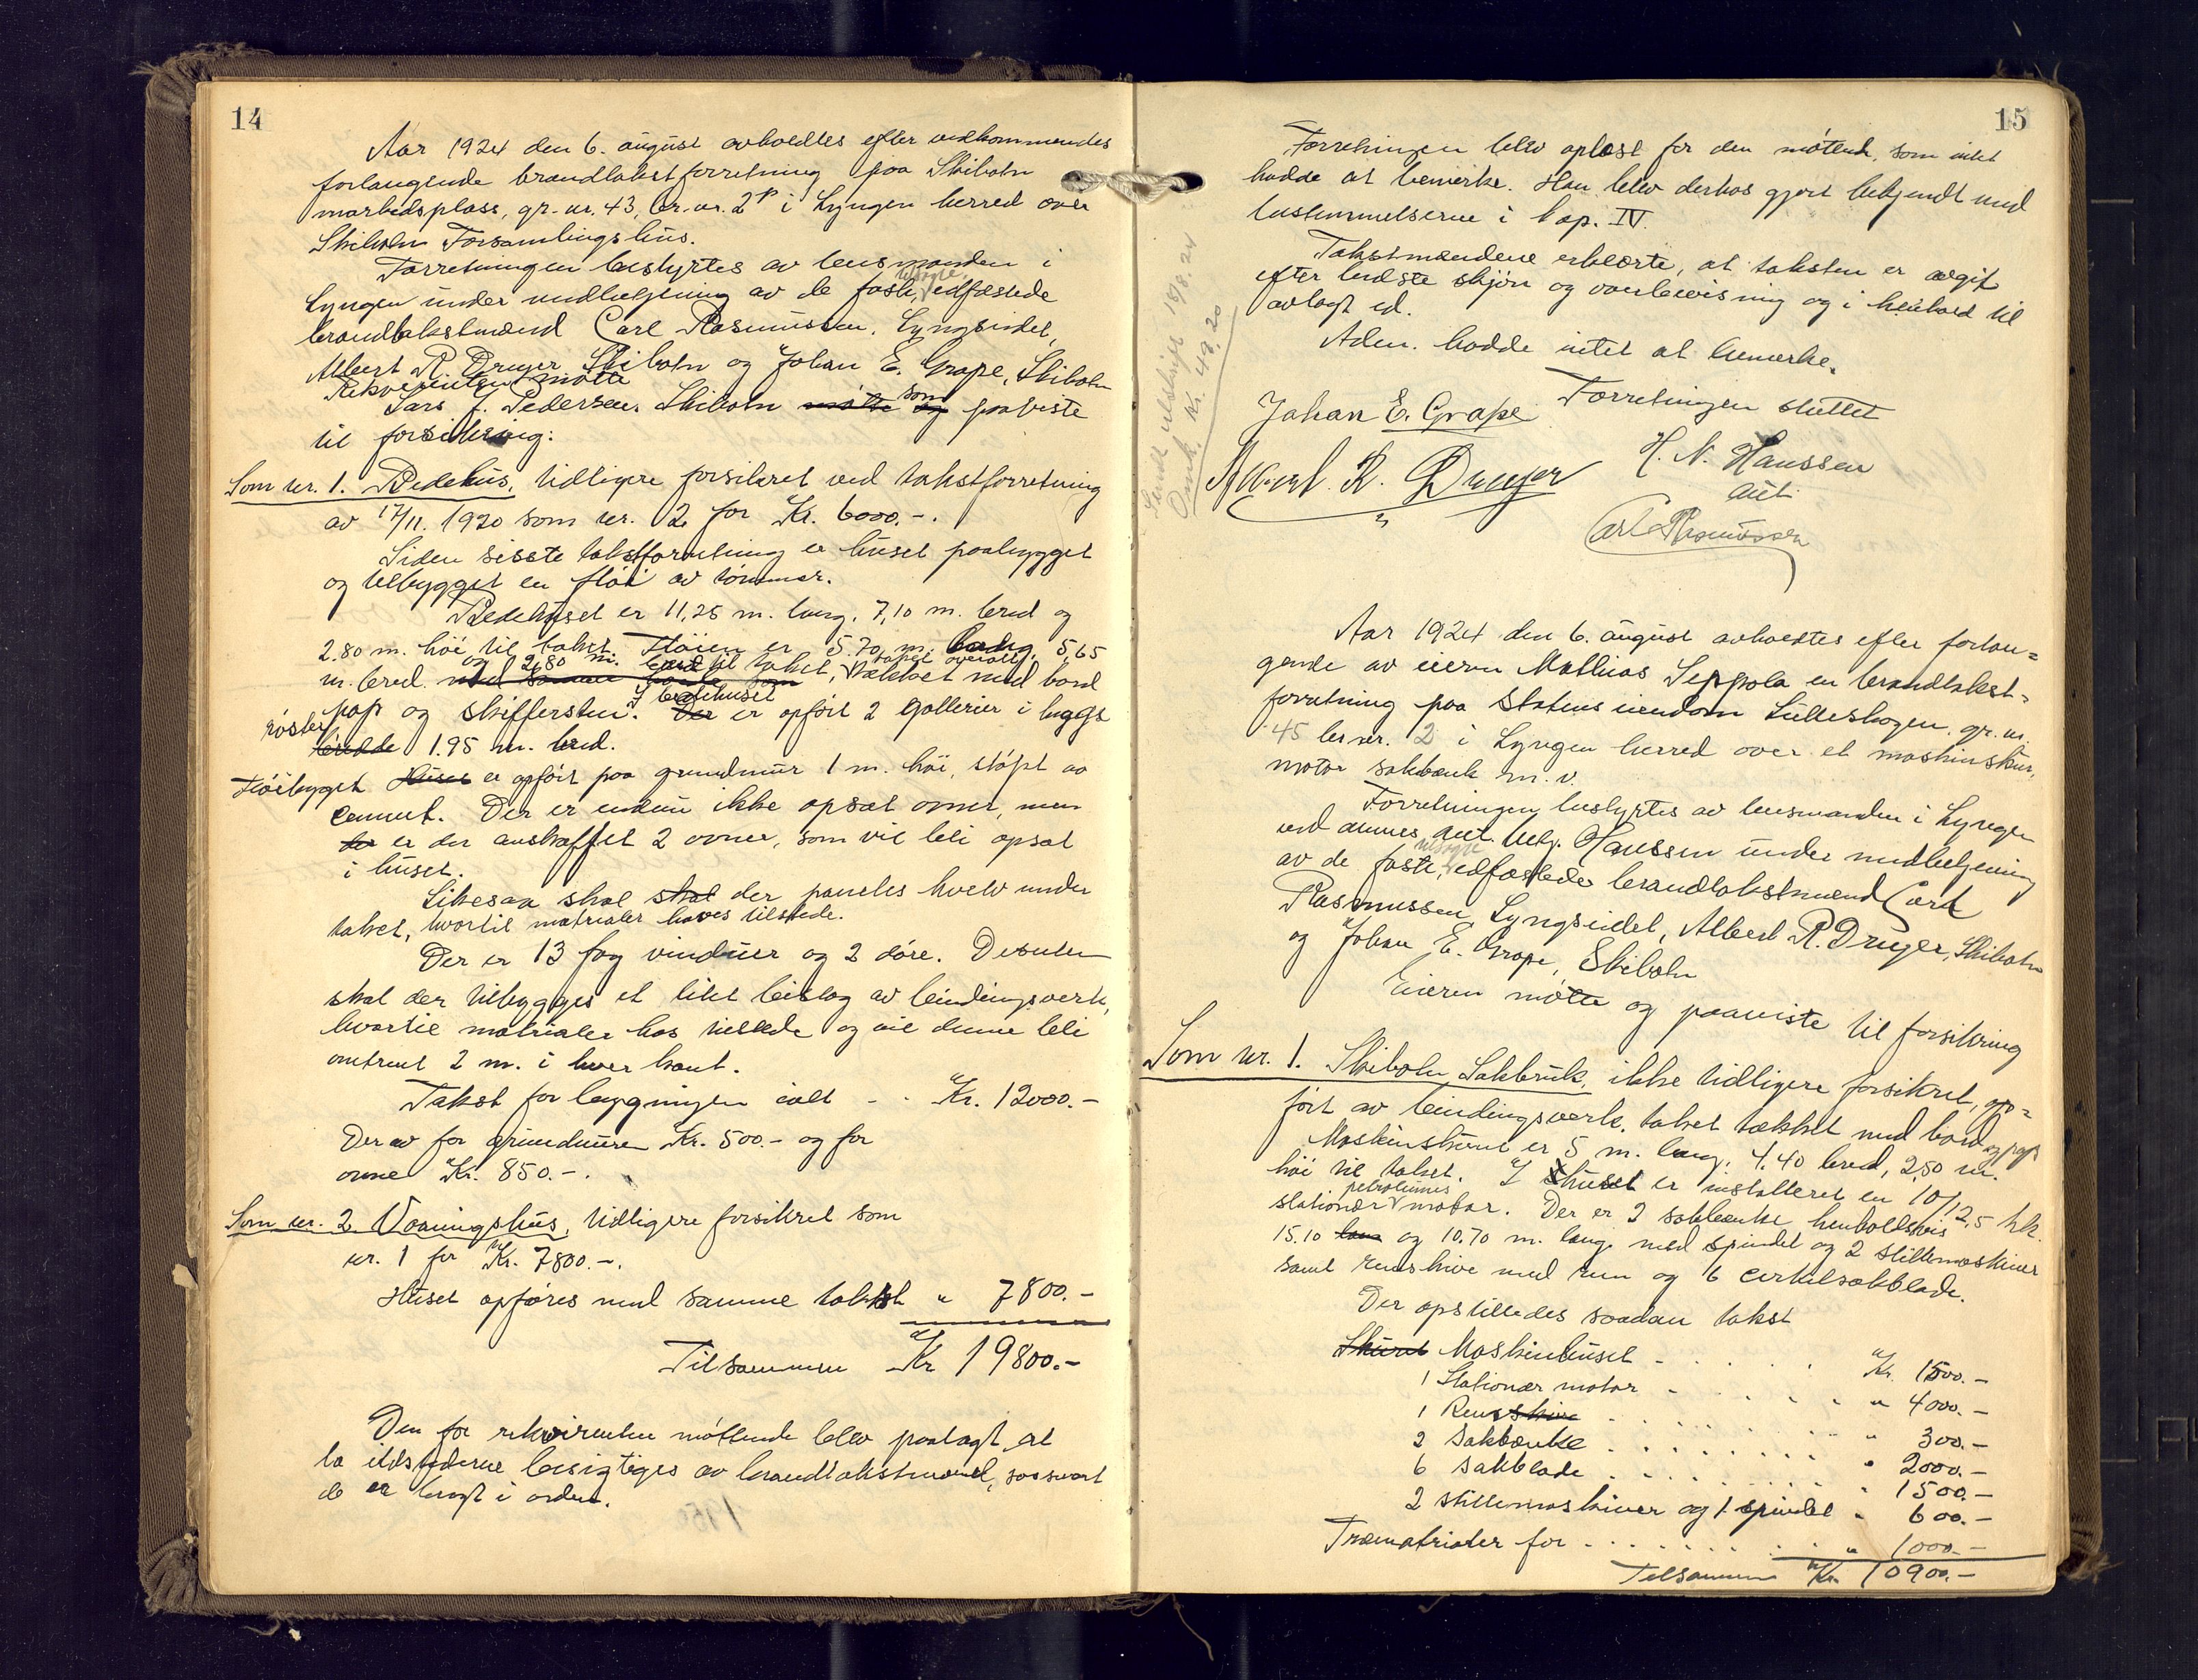 14
Aar 1924 den 6. august avholdtes efter vedkommendes
forlangende brandtakstforretning paa Skibotn
markedsplass, gr.nr. 43, br.nr. 2 i Lyngen herred over
Skibotn Forsamlingshus.
Forretningen bestyrtes av lensmanden i
Lyngen under medbetjening av de faste, tilsagte, edfæstede
brandtakstmænd Carl Rasmussen, Lyngseidet,
Albert R. Dreyer Skibotn og Johan E. Grape, Skibotn
Rekvirenten møtte
Lars J. Pedersen Skibotn møtte og som paaviste
til forsikring:
Som nr. 1. Bedehus, tidligere forsikret ved takstforretning
av 17/11. 1920 som nr. 2 for Kr. 6000.-.
Siden sisste takstforretning er huset paabygget
og tilbygget en fløi av tømmer.
Bedehuset er 11,25 m. lang, 7,10 m. bred og
2.80 m. høi til taket. Fløien er 5.70 m. lang, 5,65
og 2,80 m. til taket, taket overalt
m. bred. med samme høide som tækket med bord
pap og skiffersten. I bedehuset Der er opført 2 gallerier i bygg
bredde 1.95 m. bred.
Fløibygget Huset er opført paa grundmur 1 m. høi, støpt av
cement. Der er endnu ikke opsat ovner, men
der er der anskaffet 2 ovner, som vil bli opsat
i huset.
Likesaa skal skal der paneles hvelv under
taket, hvortil matrialer haves tilstede.
Der er 13 fag vinduer og 2 døre. Desuten
skal der tilbygges et litet bislag av bindingsverk,
hvortil matrialer has tilstede og vil denne bli
omtrent 2 m. i hver kant.
Takst for bygningen ialt - - Kr. 12000.-
Derav for grundmuren Kr. 500.- og for
ovne Kr. 850.-.
Som nr. 2 Vaaningshus, tidligere forsikret som
nr. 1 for Kr. 7800.-.
Huset opføres med samme takst " 7800.-
Tilsammen Kr 19800.-
Den for rekvirenten møttende blev paalagt at
la ildstederne besigtiges av brandtakstmænd, saasnart
de er bragt i orden.
15
Forretningen blev oplæst for den møtende, som intet
hadde at bemerke. Han blev derhos gjort bekjendt med
bestemmelserne i kap. IV.
Takstmændene erklærte, at taksten er avgit
efter bedste skjøn og overbevisning og i henhold til
avlagt ed.
Aden. hadde intet at bemerke.
Forretningen sluttet
Johan E. Grape
H. N. Hanssen
aut.
Albert R. Dreyer
Carl Rasmussen
Sendt utskrift 18/8. 24
Omk. Kr. 49.20
Aar 1924 den 6. august avholdtes efter forlan=
gende av eieren Mathias Seppola en brandtakst=
forretning paa Statens eiendom Lulleskogen, gr. nr.
45 br nr. 2 i Lyngen herred over et maskinskur,
motor sakbænk m. v.
Forretningen bestyrtes av lensmanden i Lyngen
ved dennes aut. Hanssen under medbetjening
av de faste, tilsagte edfæstede brandtakstmænd Carl
Rasmussen, Lyngseidet, Albert R. Dreyer, Skibotn
og Johan E. Grape, Skibotn
Eieren møtte og paaviste til forsikring
Som nr. 1. Skibotn Sakbruk, ikke tidligere forsikret, op=
ført av bindingsverk, taket tækket med bord og pap
Maskinskuret er 5 m. lang, 4.40 bred, 2,50 m.
høi til taket. I huset er installeret en 10/12,5 hk.
stationær petroliums motor. Der er 2 sakbænke henholdsvis
15.10 lang og 10.70 m. lang med spindel og 2 stillemaskiner
samt remskive med rem og 6 cirkelsakblade.
Der opstilledes saadan takst
Skuret Maskinhuset - . . . Kr. 1500.-
1 Stationær motor - . . . " 4000.-
1 Remskive . . . . " 300.-
2 Sakbænke . . . . " 2000.-
6 sakblade . . . . " 1500.-
2 stillemaskiner og 1 spindel " 600.-
Træmatrialer for . . . . " 1000.-
Tilsammen Kr. 10900.-